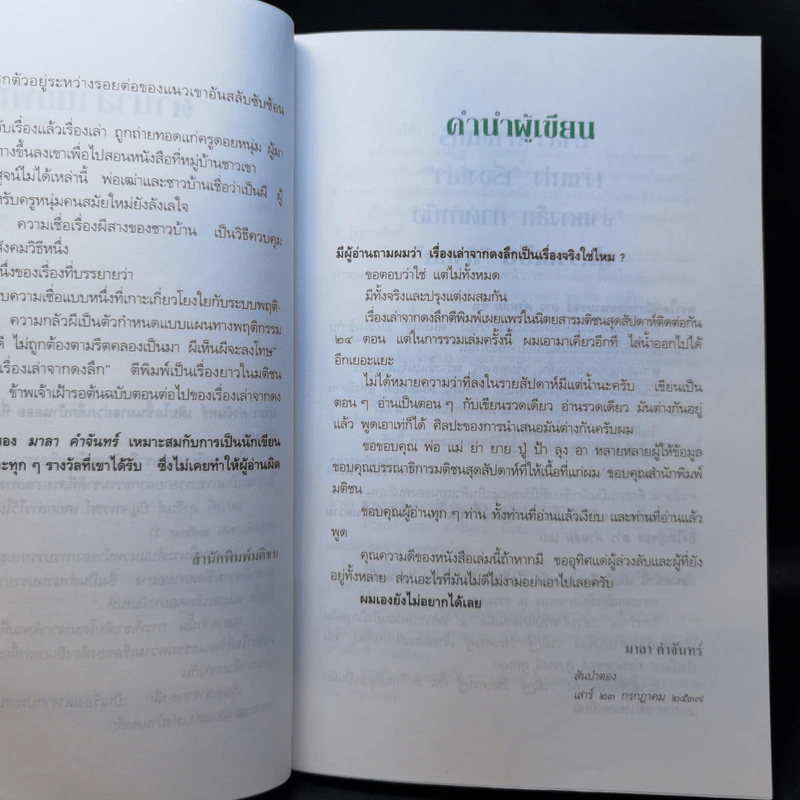 ตัวอยู่ระหว่างรอยต่อของแนวเขาอันสลับซับซ้อน
เรื่องแล้วเรื่องเล่า ถูกถ่ายทอดแก่ครูดอยหนุ่ม ผู้มา
ขึ้นลงเขาเพื่อไปสอนหนังสือที่หมู่บ้านชาวเขา
ไม่ได้เหล่านี้ พ่อเฒ่าและชาวบ้านเชื่อว่าเป็นผี ผู้
ครูหนุ่มคนสมัยใหม่ยังลังเลใจ
ความเชื่อเรื่องผีสางของชาวบ้าน เป็นวิธีควบคุม
สังคมวิธีหนึ่ง
ของเรื่องที่บรรยายว่า
ความเชื่อแบบหนึ่งที่เกาะเกี่ยวโยงใยกับระบบพฤติ-
ความกลัวผีเป็นตัวกำหนดแบบแผนทางพฤติกรรม
ไม่ถูกต้องตามรีตคลองเป็นมา ผีเห็นผีจะลงโทษ"
เรื่องเล่าจากดงลึก" ตีพิมพ์เป็นเรื่องยาวในมติชน
ข้าพเจ้าเฝ้ารอต้นฉบับตอนต่อไปของเรื่องเล่าจากดง
ของ มาลา คำจันทร์ เหมาะสมกับการเป็นนักเขียน
ทุก ๆ รางวัลที่เขาได้รับ ซึ่งไม่เคยทำให้ผู้อ่านผิด
สำนักพิมพ์มติชน
คำนำผู้เขียน
มีผู้อ่านถามผมว่า เรื่องเล่าจากดงลึกเป็นเรื่องจริงใช่ไหม ?
ขอตอบว่าใช่ แต่ไม่ทั้งหมด
มีทั้งจริงและปรุงแต่งผสมกัน
เรื่องเล่าจากดงลึกตีพิมพ์เผยแพร่ในนิตยสารมติชนสุดสัปดาห์ติดต่อกัน
๒๔ ตอน แต่ในการรวมเล่มครั้งนี้ ผมเอามาเคี่ยวอีกที ไล่น้ำออกไปได้
อีกเยอะแยะ
ไม่ได้หมายความว่าที่ลงในรายสัปดาห์มีแต่น้ำนะครับ เขียนเป็น
ตอน ๆ อ่านเป็นตอน ๆ กับเขียนรวดเดียว อ่านรวดเดียว มันต่างกันอยู่
แล้ว พูดเอาเท่ก็ได้ ศิลปะของการนำเสนอมันต่างกันครับผม
ขอขอบคุณ พ่อ แม่ ย่า ยาย ปู่ ป้า ลุง อา หลายหลายผู้ให้ข้อมูล
ขอบคุณบรรณาธิการมติชนสุดสัปดาห์ที่ให้เนื้อที่แก่ผม ขอบคุณสำนักพิมพ์
มติชน
ขอบคุณผู้อ่านทุก ๆ ท่าน ทั้งท่านที่อ่านแล้วเงียบ และท่านที่อ่านแล้ว
พูด
คุณความดีของหนังสือเล่มนี้ถ้าหากมี ขออุทิศแด่ผู้ล่วงลับและผู้ที่ยัง
อยู่ทั้งหลาย ส่วนอะไรที่มันไม่ดีไม่งามอย่าเอาไปเลยครับ
ผมเองยังไม่อยากได้เลย
มาลา คำจันทร์
สันป่าตอง
เสาร์ ๒๓ กรกฎาคม ๒๕๓๗